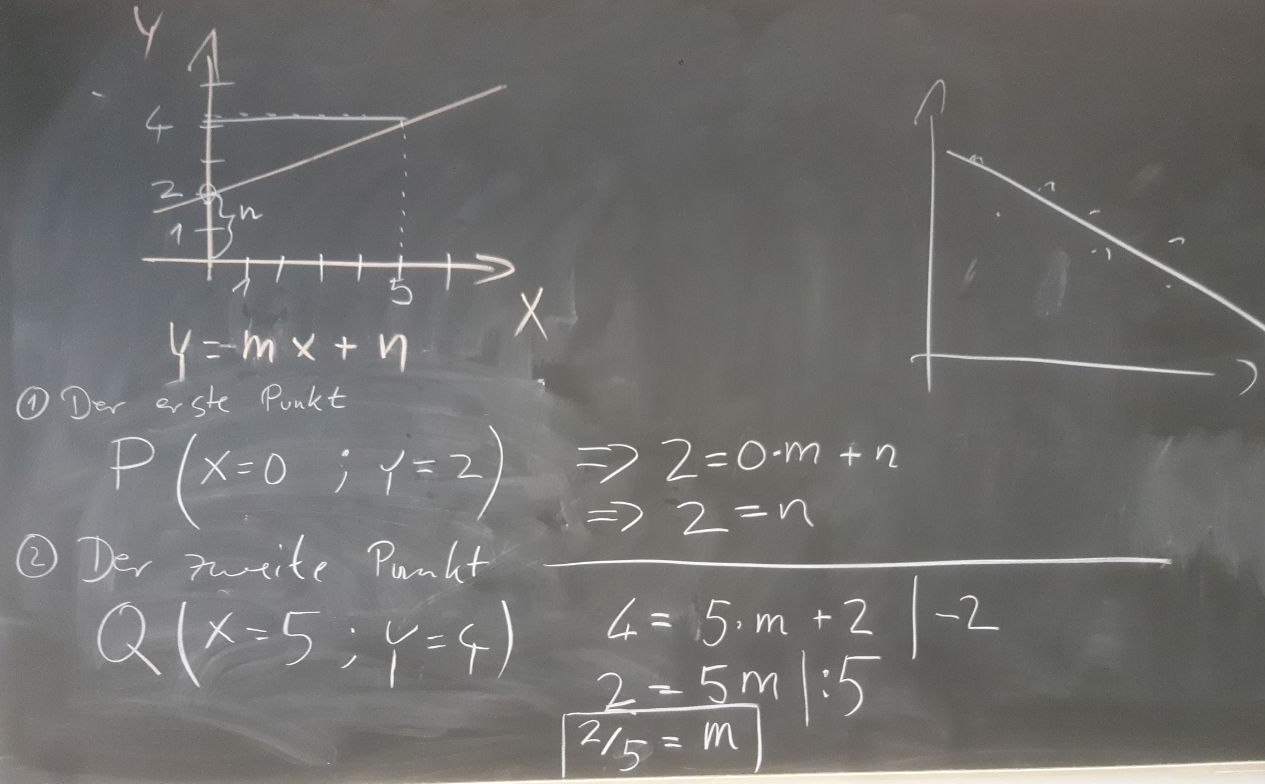 Y
4
2
n
1
1
5
X
y = m x + n
① Der erste Punkt
P (x=0 ; y=2) => 2=0·m + n
=> 2 = n
② Der zweite Punkt
Q (x=5 ; y=4) 4 = 5·m + 2 | -2
2 = 5m | :5
2/5 = m